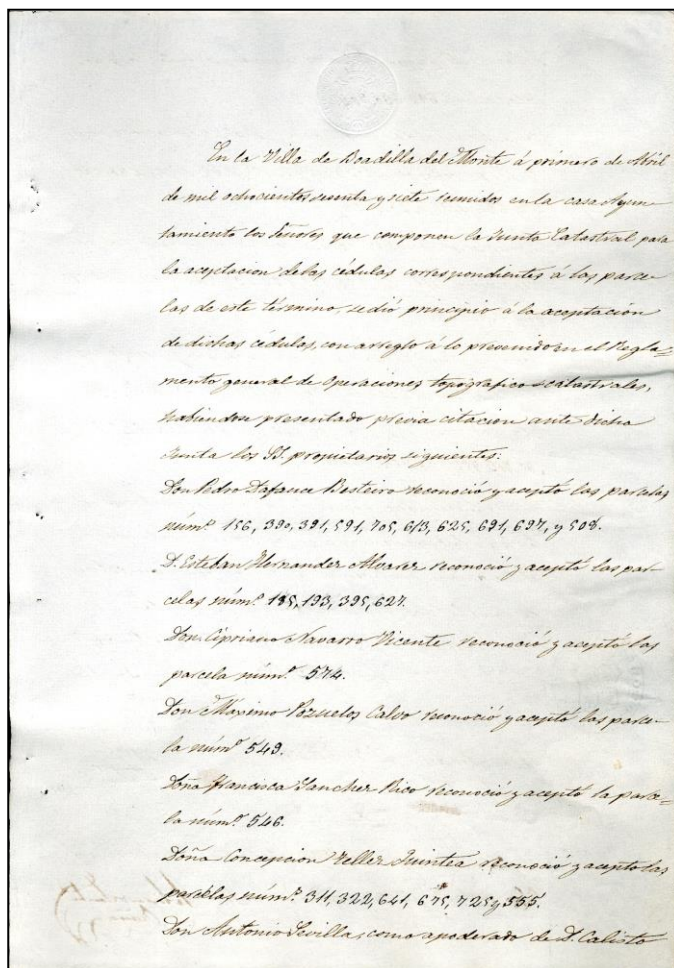 En la Villa de Boadilla del Monte á primero de Abril
de mil ochocientos sesenta y siete reunidos en la casa Ayun-
tamiento los Señores que componen la Junta Catastral para
la aceptacion de las cédulas correspondientes á las parce-
las de este término, se dió principio á la aceptación
de dichas cédulas, con arreglo á lo prevenido en el Regla=
mento general de Operaciones topografico-catastrales,
habiéndose presentado previa citacion ante dicha
Junta los SS. propietarios siguientes:
Don Pedro Besteiro reconoció y aceptó las parcelas
núms. 156, 390, 391, 591, 705, 613, 625, 691, 697, y 508.
D. Esteban Hernandez Alvarez reconoció y aceptó las par-
celas núms. 185, 193, 395, 627.
Don Cipriano Navarro Vicente reconoció y aceptó las
parcela núm.º 574.
Don Máximo Pozuelos Calvo reconoció y aceptó las parce-
la núm.º 549.
Doña Francisca Sanchez Rico reconoció y aceptó la parce=
la núm.º 546.
Doña Concepcion Teller reconoció y acepto las
parcelas núms. 311, 322, 641, 675, 725 y 555.
Don Antonio Sevillas, como apoderado de D. Calisto